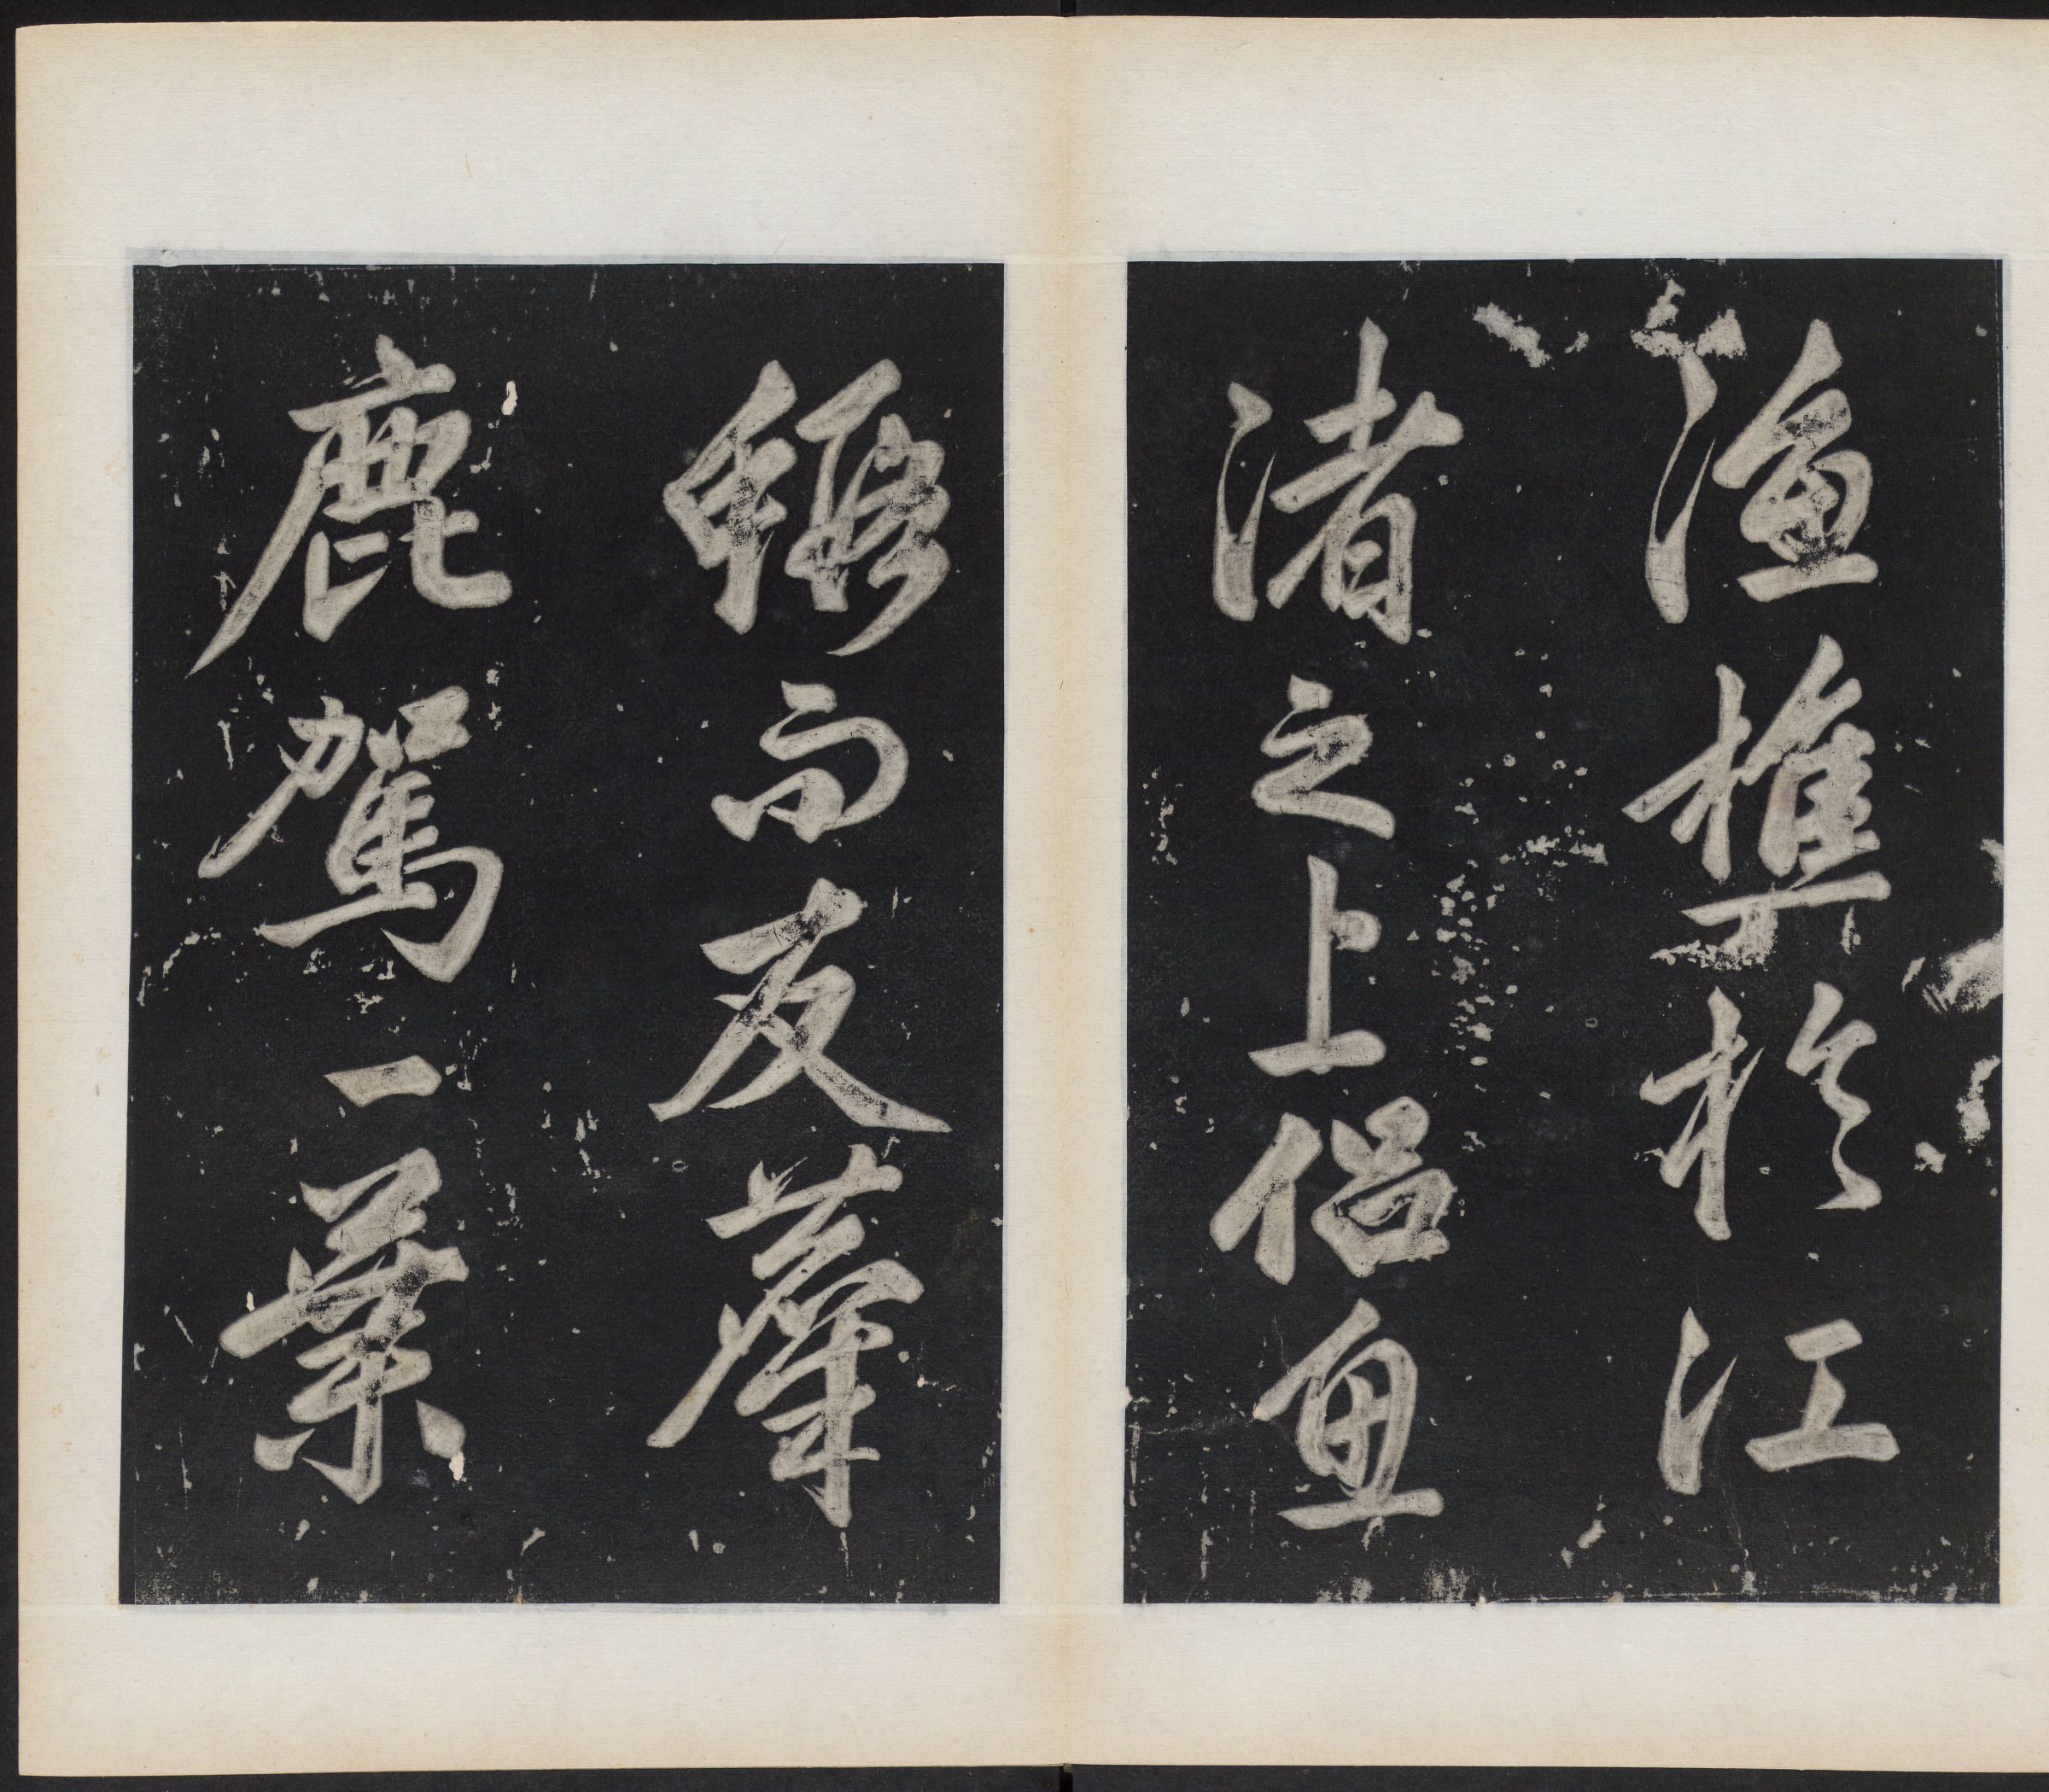 漁樵於江
渚之上侣魚
鰕而友麋
鹿駕一葉